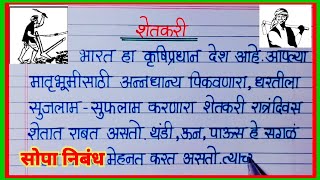 शेतकरी
भारत हा कृषिप्रधान देश आहे. आपल्या
मातृभूमीसाठी अन्नधान्य पिकवणारा, धरतीला
सुजलाम - सुफलाम करणारा शेतकरी रात्रंदिवस
शेतात राबत असतो. थंडी, ऊन, पाऊस हे सगळं
सोपा निबंध मेहनत करत असतो. त्याच